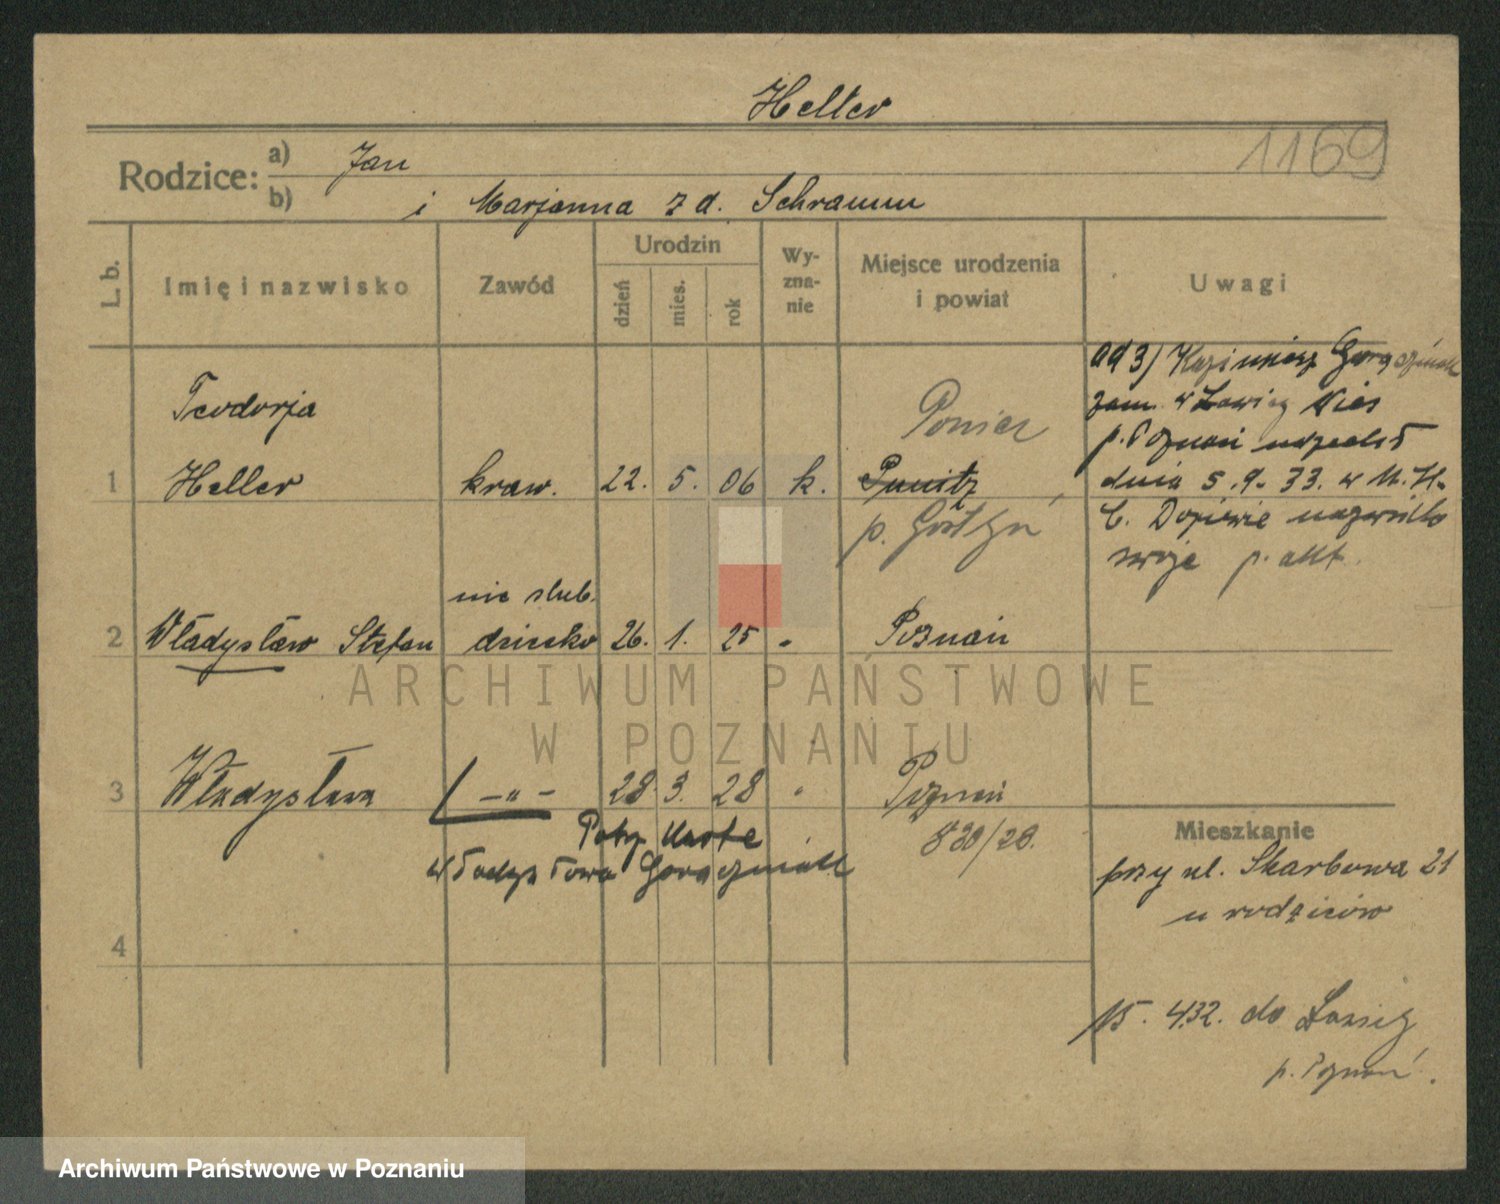 Heller
1169
Rodzice: a) Jan
b) i Marjanna z d. Schramm
L. b.
Imię i nazwisko
Zawód
Urodzin
dzień
mies.
rok
Wy-
zna-
nie
Miejsce urodzenia
i powiat
Uwagi
Teodorja
1 Heller kraw. 22. 5. 06 k. Punitz
Poniec
p. Gostyń
ad 3) Kazimierz
zam. w
p. Poznań
dnia 5.9.33. w U.
nazwisko
swoje p. akt.
nie ślub.
2 Władysław Stefan dziecko 26. 1. 25 " Poznań
3 Władysława -"- 28. 3. 28 " Poznań
830/28.
Patrz kartę
Władysława Gorączniak
4
Mieszkanie
przy ul. Skarbowa 21
u rodziców
15. 4.32. do
p. Poznań.
ARCHIWUM PAŃSTWOWE
W POZNANIU
Archiwum Państwowe w Poznaniu